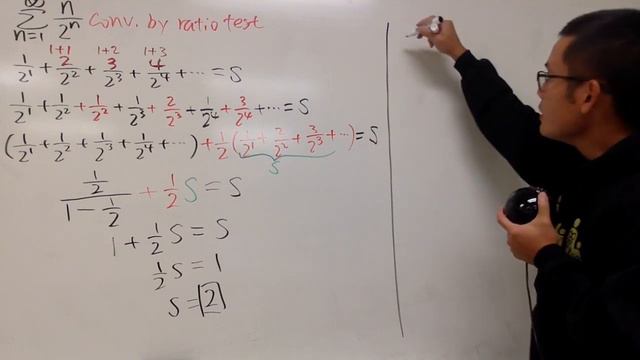 ∞
∑ n/2ⁿ Conv. by ratio test
n=1
1+1 1+2 1+3
1/2¹ + 2/2² + 3/2³ + 4/2⁴ + ... = S
1/2¹ + 1/2² + 1/2² + 1/2³ + 2/2³ + 1/2⁴ + 3/2⁴ + ... = S
(1/2¹ + 1/2² + 1/2³ + 1/2⁴ + ...) + 1/2 (1/2¹ + 2/2² + 3/2³ + ...) = S
S
(1/2)/(1 - 1/2) + 1/2 S = S
1 + 1/2 S = S
1/2 S = 1
S = 2